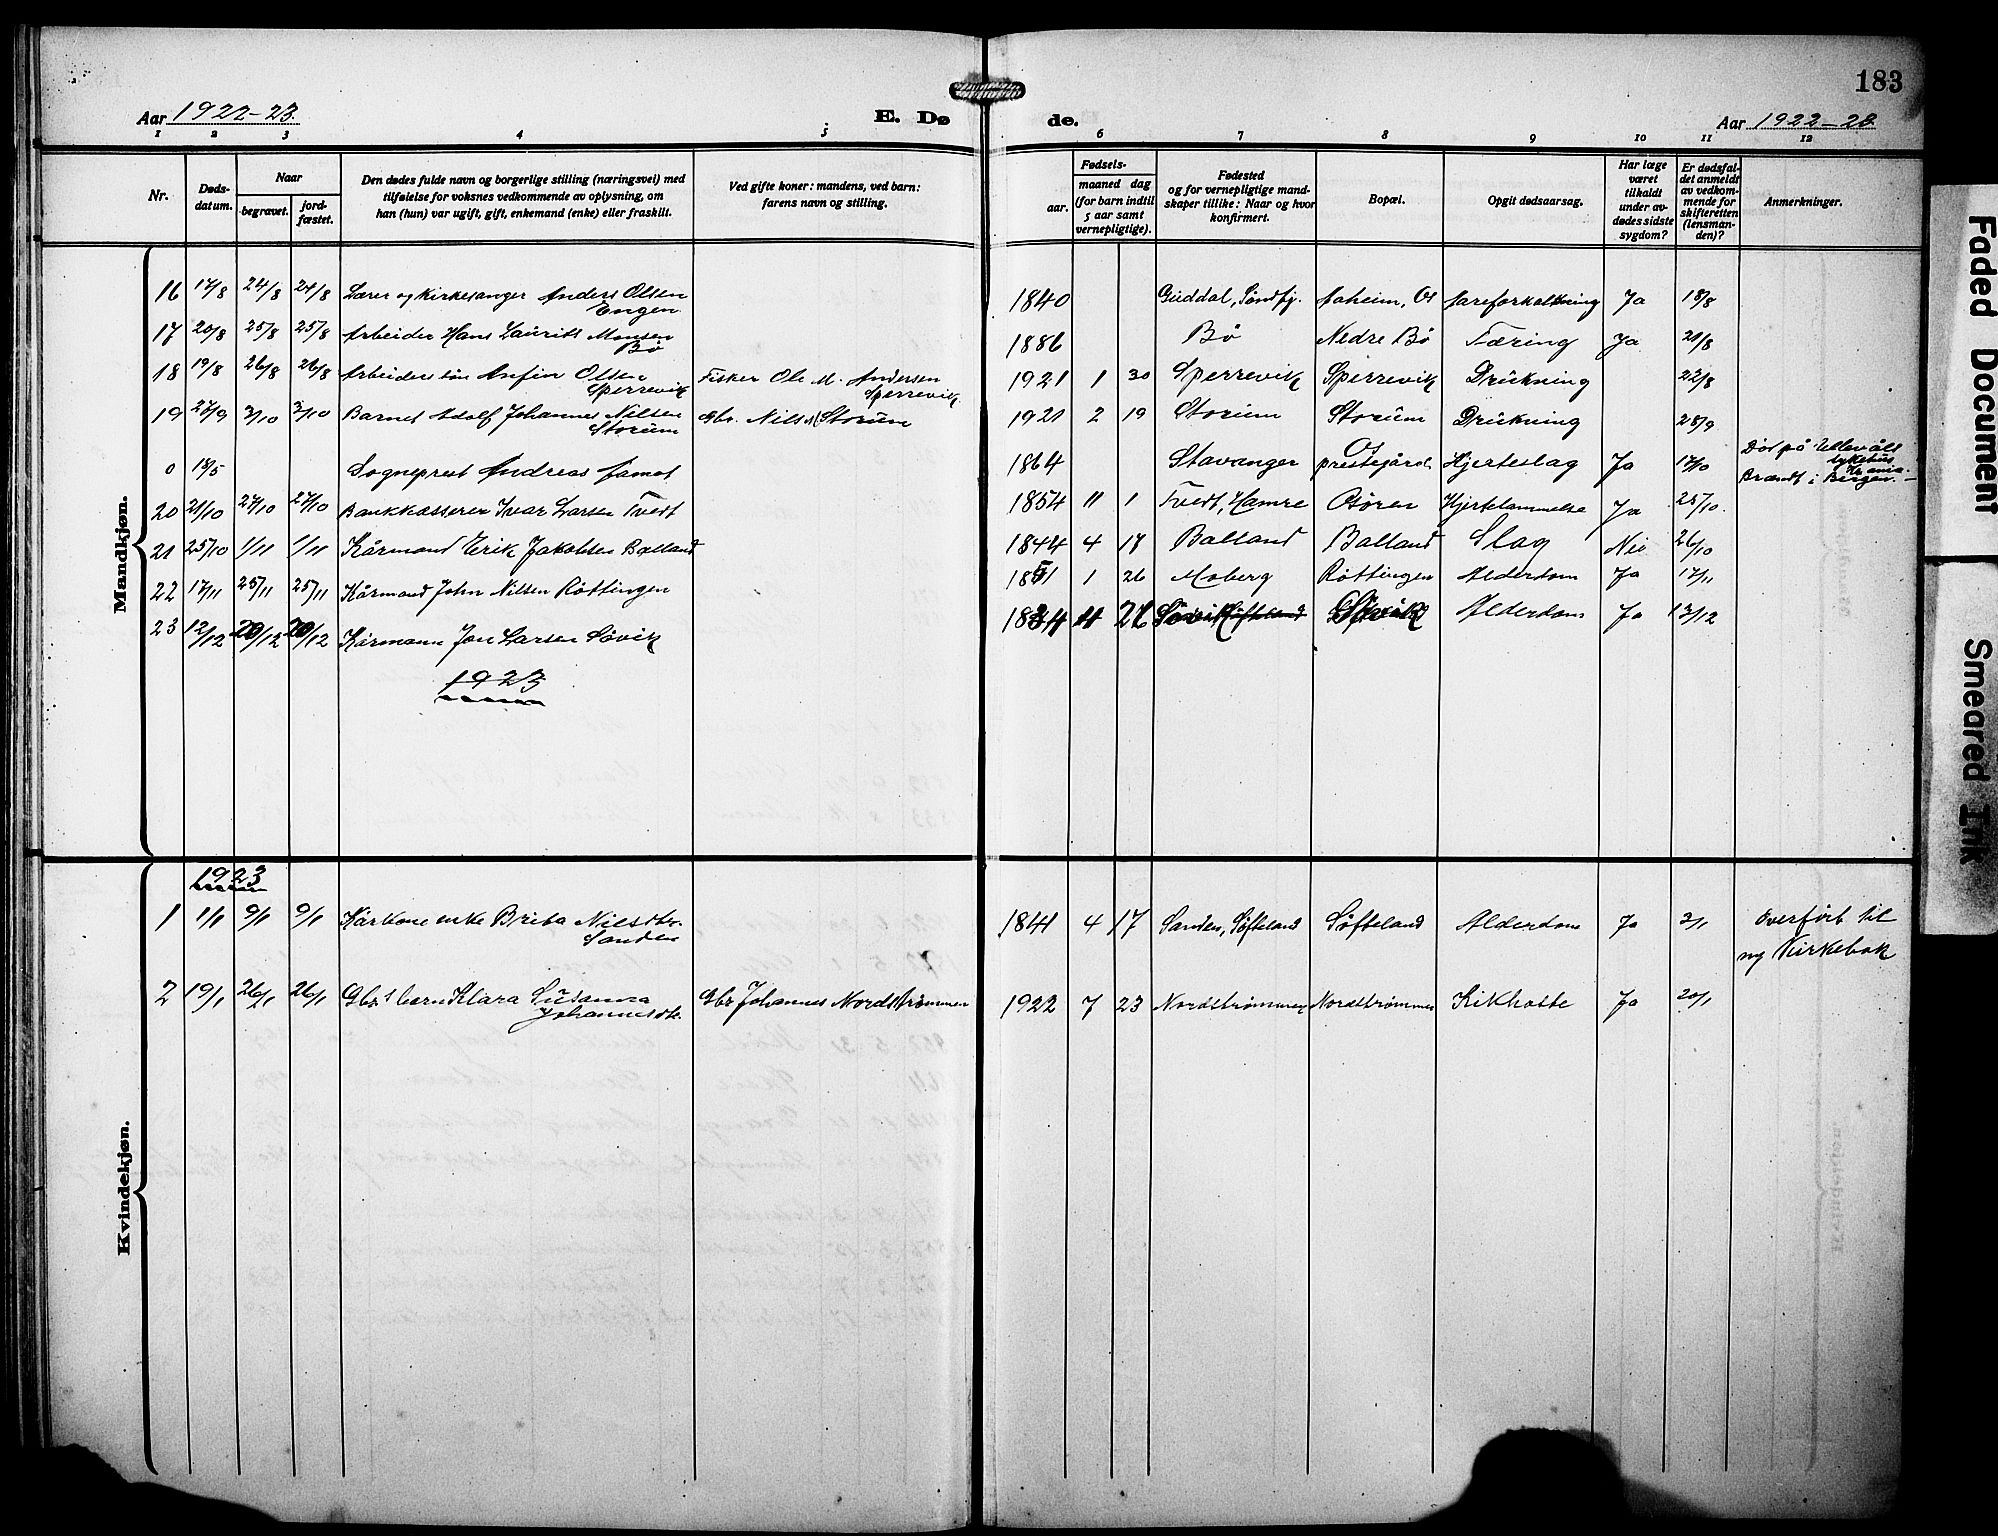 183
Aar 1922-23.
E. Dø
de.
Aar 1922-23.
1 2 3 4 5 6 7 8 9 10 11 12
Nr.
Døds-
datum.
Naar
begravet.
jord-
fæstet.
Den dødes fulde navn og borgerlige stilling (næringsvei) med
tilføielse for voksnes vedkommende av oplysning, om
han (hun) var ugift, gift, enkemand (enke) eller fraskilt.
Ved gifte koner: mandens, ved barn:
farens navn og stilling.
Fødsels-
aar.
maaned dag
(for barn indtil
5 aar samt
vernepligtige).
Fødested
og for vernepligtige mand-
skaper tillike: Naar og hvor
konfirmert.
Bopæl.
Opgit dødsaarsag.
Har læge
været
tilkaldt
under av-
dødes sidste
sygdom?
Er dødsfal-
det anmeldt
av vedkom-
mende for
skifteretten
(lensman-
den)?
Anmerkninger.
Mandkjøn.
16 17/8 24/8 24/8 Lærer og kirkesanger Anders Olsen
Engen
1840 Guddal, Søndfj. Aaheim, Os Aareforkalkning Ja 18/8
17 20/8 25/8 25/8 Arbeider Hans Laurits Monsen
Bø
1886 Bø Nedre Bø Tæring Ja 21/8
18 19/8 26/8 26/8 Arbeiders søn Anfin Olsen
Sperrevik
Fisker Ole M. Andersen
Sperrevik.
1921 1 30 Sperrevik Sperrevik Drukning 22/8
19 27/9 3/10 3/10 Barnet Adolf Johannes Nilsen
Storum
Gbr. Nils M Storum
1921 2 19 Storum Storum Drukning 28/9
0 18/5 Sogneprest Andreas Jamot
1864 Stavanger Os
prestegård Hjerteslag Ja 17/10 Død på Ullevåll
sykehus
Kr.ania.
Brændt i Bergen. -
20 21/10 27/10 27/10 Bankkasserer Ivar Larsen Tvedt
1854 11 1 Tvedt, Hamre Osøren Hjertelammelse Ja 25/10.
21 25/10 1/11 1/11 Kårmand Erik Jakobsen Balland
1844 4 17 Balland Balland Slag Nei 26/10
22 17/11 25/11 25/11 Kårmand John Nilsen Røttingen
1851 1 26 Moberg Røttingen Alderdom Ja 17/11
23 12/12 20/12 20/12 Kårmann Jon Larsen Søvik
1834 4 27 Søvik Søfteland Søvik Alderdom Ja 13/12
1923
Kvindekjøn.
1923
1 1/1 9/1 9/1 Kårkone enke Brita Nilsdtr.
Sanden
1841 4 17 Sanden, Søfteland Søfteland Alderdom Ja 2/1 Overført til
ny Kirkebok
2 19/1 26/1 26/1 Gbr.s barn Klara Susanna
Johannesdtr.
Gbr Johannes Nordstrømmen
1922 7 23 Nordstrømmen Nordstrømmen Kikhoste Ja 20/1
Faded Document
Smeared Ink